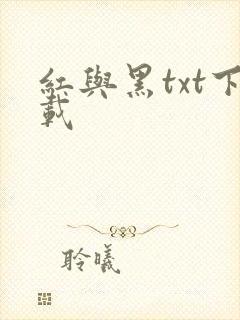 紅與黑txt下
載
聆曦